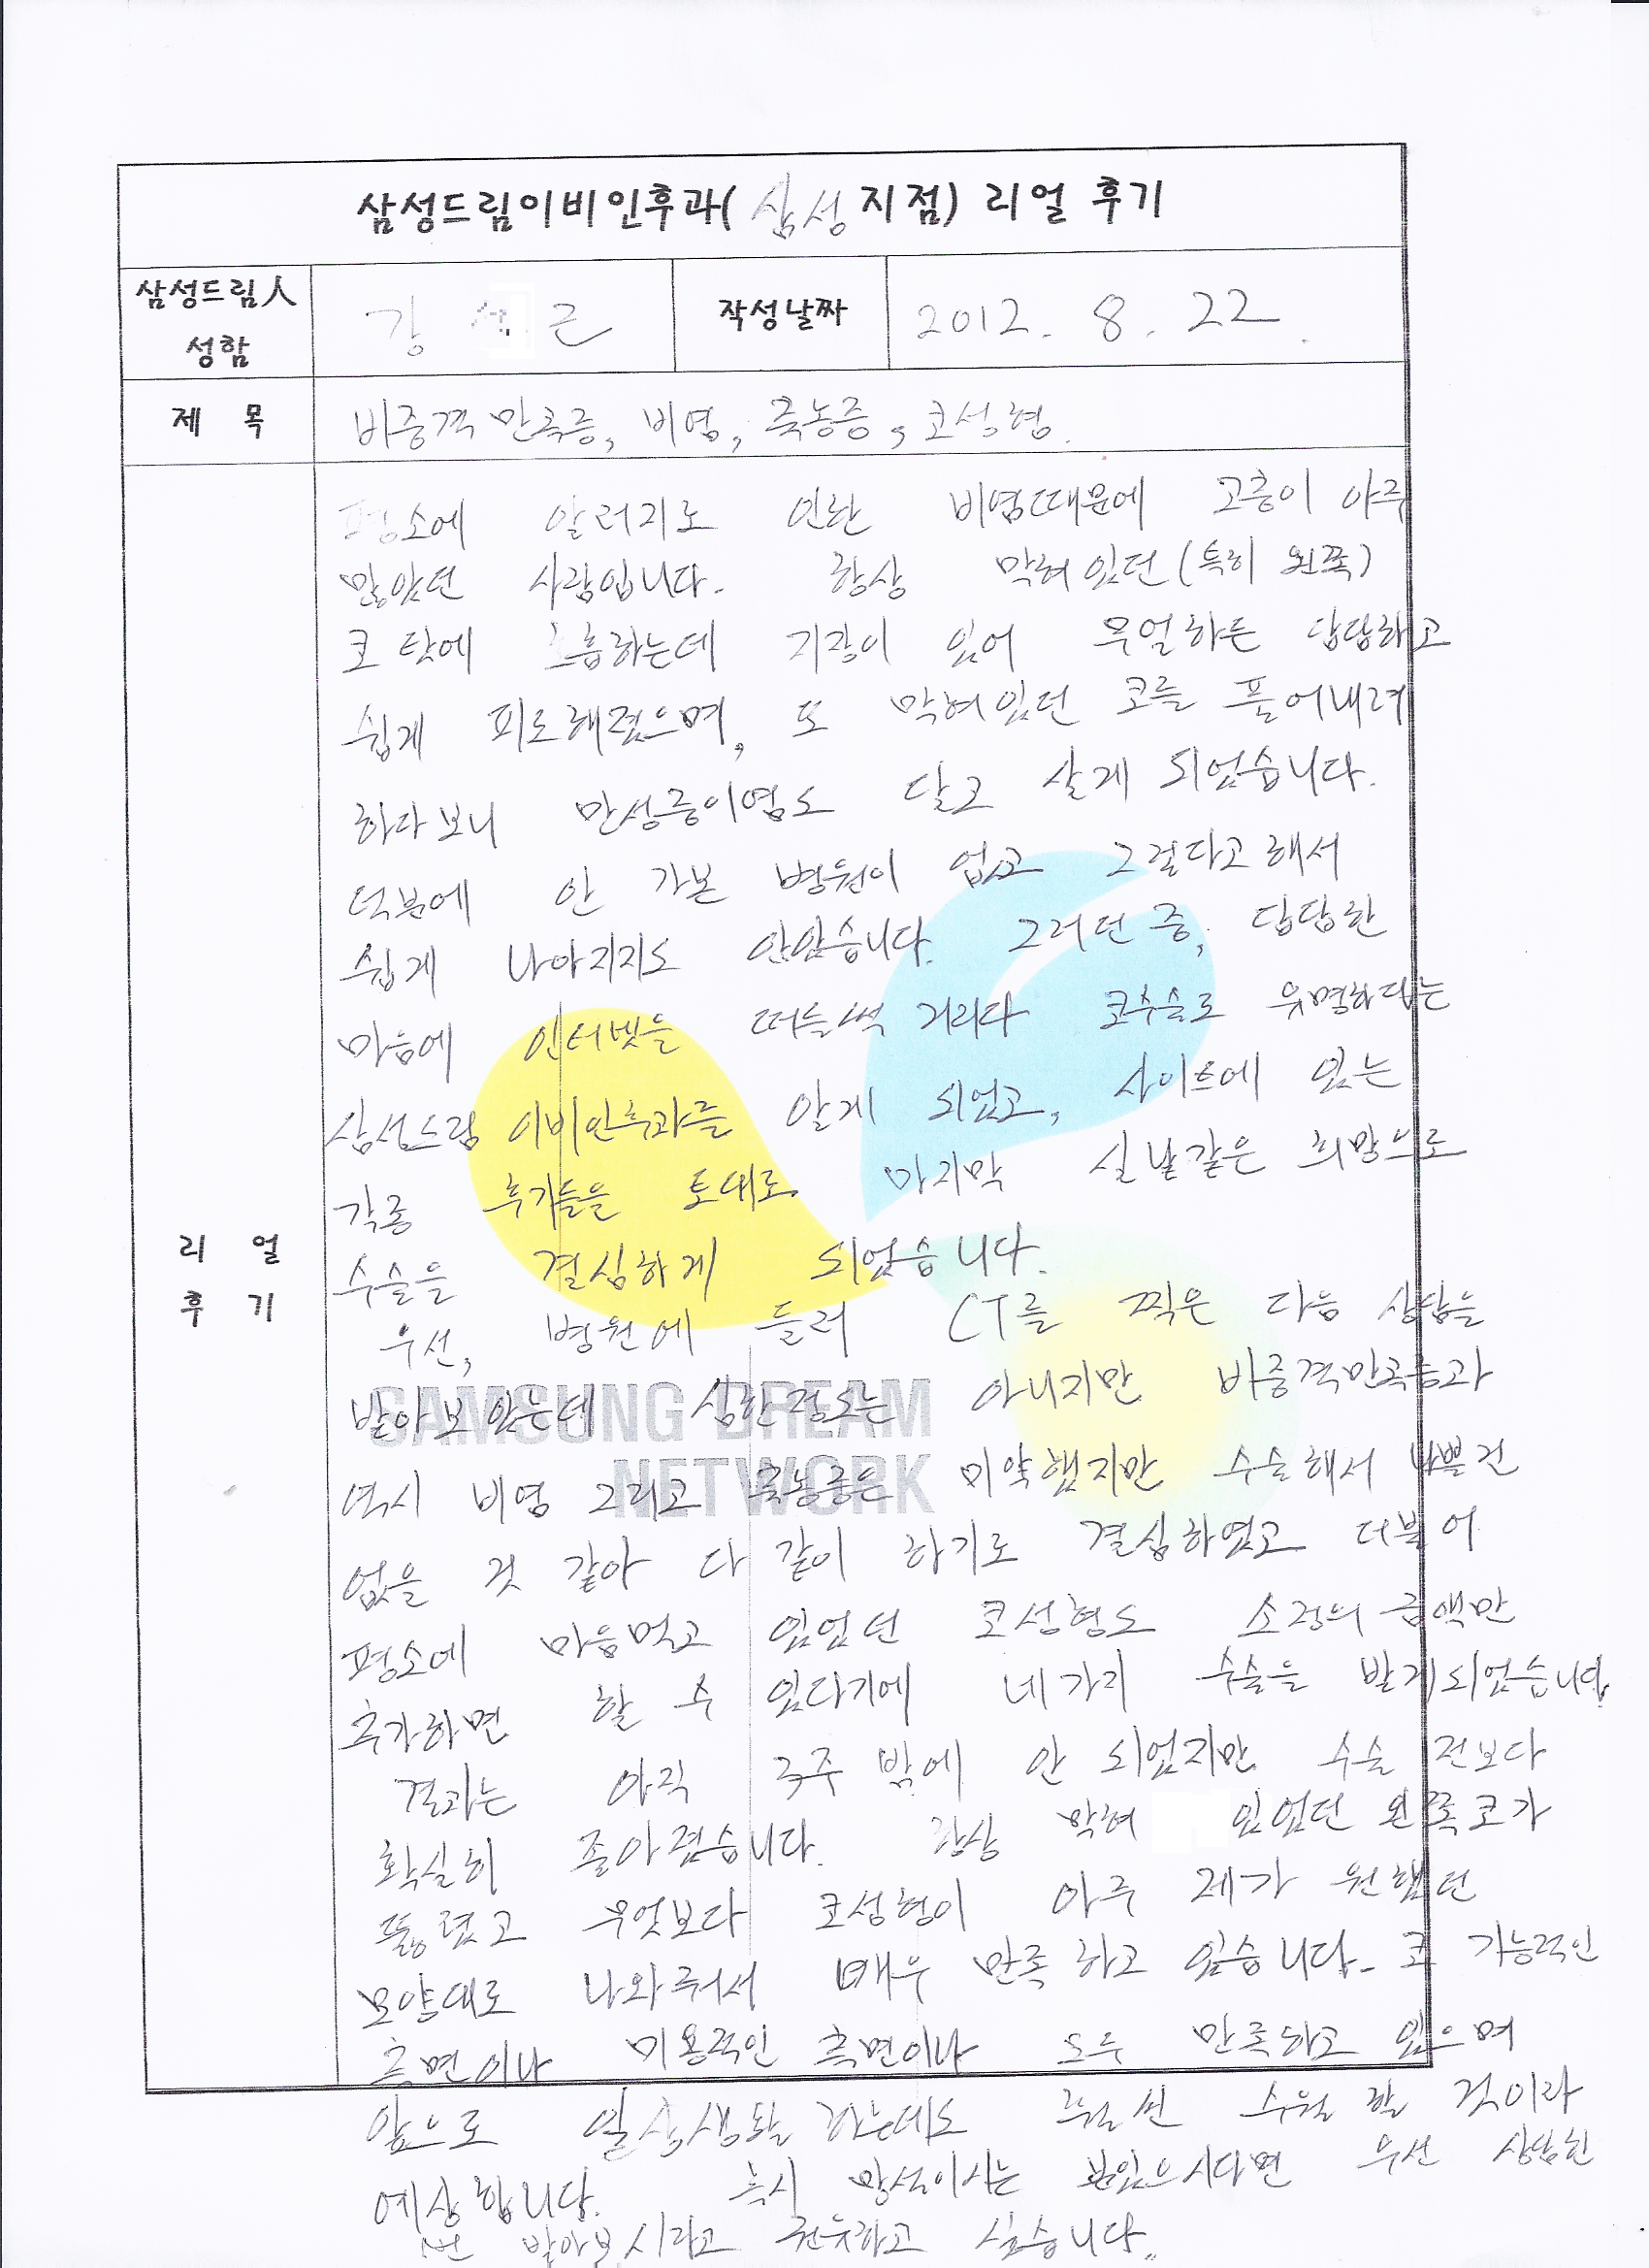 삼성드림이비인후과(삼성지점) 리얼 후기
삼성드림人
성함
강 근
작성날짜
2012. 8. 22.
제 목
비중격만곡증, 비염, 축농증, 코성형.
평소에 알러지로 인한 비염때문에 고충이 아주
많았던 사람입니다. 항상 막혀있던(특히 왼쪽)
코 탓에 호흡하는데 지장이 있어 무얼하든 답답하고
쉽게 피로해졌으며, 또 막혀있던 코를 풀어내려
하다보니 만성중이염도 달고 살게 되었습니다.
덕분에 안 가본 병원이 없고 그렇다고해서
쉽게 나아지지도 않았습니다. 그러던 중, 답답한
마음에 인터넷을 떠들썩 거리다 코수술로 유명하다는
삼성드림 이비인후과를 알게 되었고, 사이트에 있는
각종 후기들을 토대로 마지막 실날같은 희망으로
수술을 결심하게 되었습니다.
우선, 병원에 들러 CT를 찍은 다음 상담을
받아보았는데 심한정도는 아니지만 비중격만곡증과
역시 비염 그리고 축농증은 미약했지만 수술해서 나쁠건
없을 것 같아 다 같이 하기로 결심하였고 더불어
평소에 마음먹고 있었던 코성형도 소정의 금액만
추가하면 할 수 있다기에 네가지 수술을 받게되었습니다.
리 얼
후 기
결과는 아직 3주 밖에 안 되었지만 수술 전보다
확실히 좋아졌습니다. 항상 막혀 있었던 왼쪽코가
뚫렸고 무엇보다 코성형이 아주 제가 원했던
모양대로 나와줘서 매우 만족하고 있습니다. 코 기능적인
측면이나 미용적인 측면이나 모두 만족하고 있으며
앞으로 일상생활 하는데도 훨씬 수월 할 것이라
예상합니다. 혹시 망설이시는 분있으시다면 우선 상담한
번 받아보시라고 권유하고 싶습니다.
SAMSUNG DREAM
NETWORK